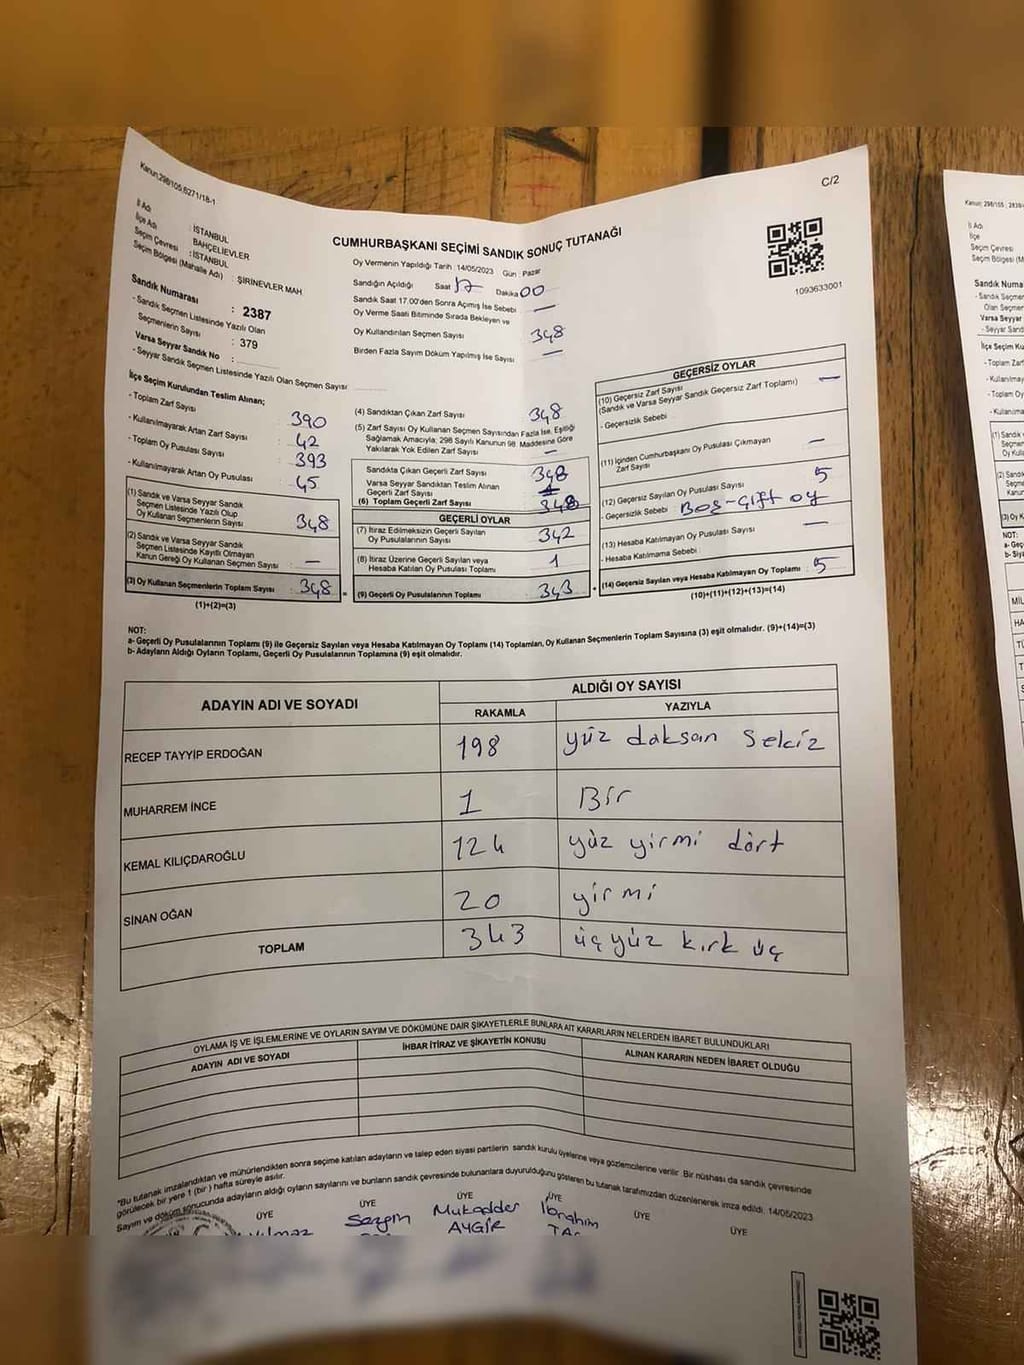 Kanun;298/105,6271/18-1
C/2
İl Adı : İSTANBUL
İlçe Adı : BAHÇELİEVLER
Seçim Çevresi : İSTANBUL
Seçim Bölgesi (Mahalle Adı) : ŞİRİNEVLER MAH
CUMHURBAŞKANI SEÇİMİ SANDIK SONUÇ TUTANAĞI
Oy Vermenin Yapıldığı Tarih :14/05/2023 Gün : Pazar
Sandığın Açıldığı Saat 17 Dakika 00
Sandık Saat 17.00'den Sonra Açımış İse Sebebi —
Oy Verme Saati Bitiminde Sırada Bekleyen ve
Oy Kullandırılan Seçmen Sayısı 348
Birden Fazla Sayım Döküm Yapılmış İse Sayısı —
1093633001
Sandık Numarası : 2387
- Sandık Seçmen Listesinde Yazılı Olan
Seçmenlerin Sayısı : 379
Varsa Seyyar Sandık No :
- Seyyar Sandık Seçmen Listesinde Yazılı Olan Seçmen Sayısı
İlçe Seçim Kurulundan Teslim Alınan;
- Toplam Zarf Sayısı 390
- Kullanılmayarak Artan Zarf Sayısı 42
- Toplam Oy Pusulası 393
- Kullanılmayarak Artan Oy Pusulası 45
(1) Sandık ve Varsa Seyyar Sandık
Seçmen Listesinde Yazılı Olup
Oy Kullanan Seçmenlerin Sayısı 348
(2) Sandık ve Varsa Seyyar Sandık
Seçmen Listesinde Kayıtlı Olmayan
Kanun Gereği Oy Kullanan Seçmen Sayısı : —
(3) Oy Kullanan Seçmenlerin Toplam Sayısı : 348
(1)+(2)=(3)
(4) Sandıktan Çıkan Zarf Sayısı 348
(5) Zarf Sayısı Oy Kullanan Seçmen Sayısından Fazla İse, Eşitliği
Sağlamak Amacıyla; 298 Sayılı Kanunun 98. Maddesine Göre
Yakılarak Yok Edilen Zarf Sayısı —
Sandıkta Çıkan Geçerli Zarf Sayısı 348
Varsa Seyyar Sandıktan Teslim Alınan
Geçerli Zarf Sayısı
(6) Toplam Geçerli Zarf Sayısı 348
GEÇERLİ OYLAR
(7) İtiraz Edilmeksizin Geçerli Sayılan
Oy Pusulalarının Sayısı 342
(8) İtiraz Üzerine Geçerli Sayılan veya
Hesaba Katılan Oy Pusulası Toplamı 1
(9) Geçerli Oy Pusulalarının Toplamı 343
GEÇERSİZ OYLAR
(10) Geçersiz Zarf Sayısı
(Sandık ve Varsa Seyyar Sandık Geçersiz Zarf Toplamı) —
- Geçersizlik Sebebi
(11) İçinden Cumhurbaşkanı Oy Pusulası Çıkmayan
Zarf Sayısı —
(12) Geçersiz Sayılan Oy Pusulası Sayısı 5
- Geçersizlik Sebebi Boş-Çift oy
(13) Hesaba Katılmayan Oy Pusulası Sayısı —
- Hesaba Katılmama Sebebi
(14) Geçersiz Sayılan veya Hesaba Katılmayan Oy Toplamı : 5
(10)+(11)+(12)+(13)=(14)
NOT:
a- Geçerli Oy Pusulalarının Toplamı (9) ile Geçersiz Sayılan veya Hesaba Katılmayan Oy Toplamı (14) Toplamları, Oy Kullanan Seçmenlerin Toplam Sayısına (3) eşit olmalıdır. (9)+(14)=(3)
b- Adayların Aldığı Oyların Toplamı, Geçerli Oy Pusulalarının Toplamına (9) eşit olmalıdır.
ADAYIN ADI VE SOYADI ALDIĞI OY SAYISI
RAKAMLA YAZIYLA
RECEP TAYYİP ERDOĞAN 198 yüz doksan Sekiz
MUHARREM İNCE 1 Bir
KEMAL KILIÇDAROĞLU 124 yüz yirmi dört
SİNAN OĞAN 20 yirmi
TOPLAM 343 üç yüz kırk üç
OYLAMA İŞ VE İŞLEMLERİNE VE OYLARIN SAYIM VE DÖKÜMÜNE DAİR ŞİKAYETLERLE BUNLARA AİT KARARLARIN NELERDEN İBARET BULUNDUKLARI
ADAYIN ADI VE SOYADI İHBAR İTİRAZ VE ŞİKAYETİN KONUSU ALINAN KARARIN NEDEN İBARET OLDUĞU
*Bu tutanak imzalandıktan ve mühürlendikten sonra seçime katılan adayların ve talep eden siyasi partilerin sandık kurulu üyelerine veya gözlemcilerine verilir. Bir nüshası da sandık çevresinde
görülecek bir yere 1 (bir) hafta süreyle asılır.
Sayım ve döküm sonucunda adayların aldığı oyların sayılarını ve bunların sandık çevresinde bulunanlara duyurulduğunu gösteren bu tutanak tarafımızdan düzenlenerek imza edildi. 14/05/2023
ÜYE ÜYE ÜYE ÜYE ÜYE ÜYE
Sezgin Mukadder İbrahim
AYGİR
İl Adı
İlçe
Seçim Çevresi